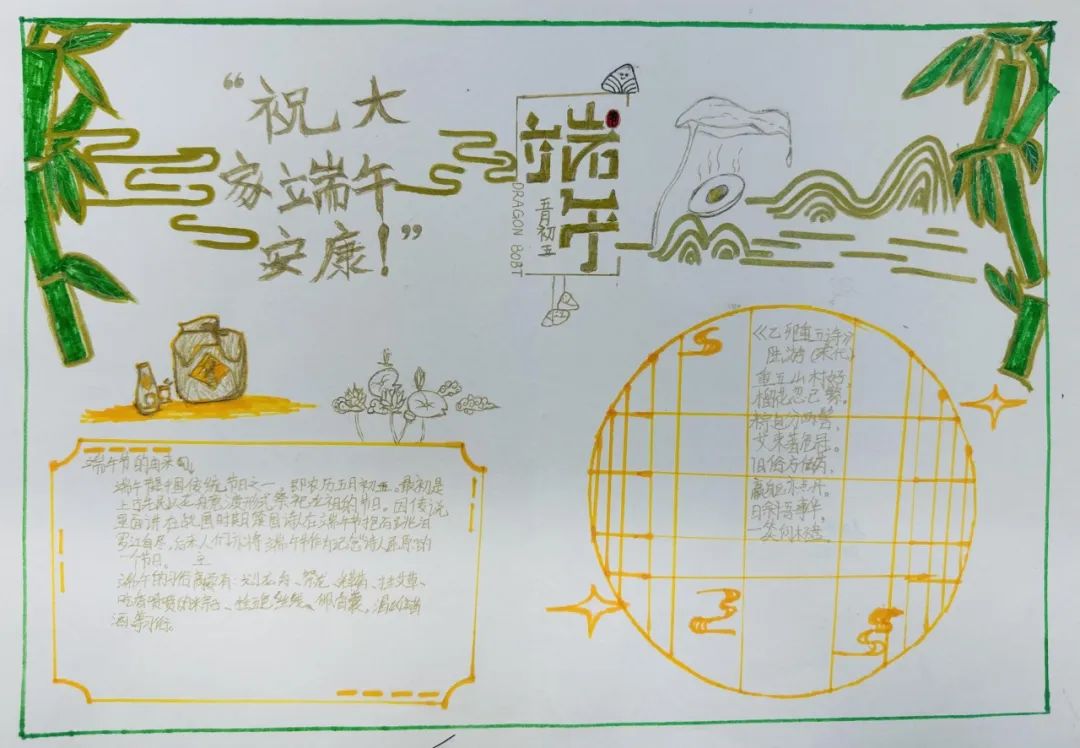 “祝大
家端午
安康！”
端午
五月初五
DRAGON BOBT
端午节的由来：
端午节是中国传统节日之一，即农历五月初五。最初是
上古先民以龙舟竞渡形式祭祀龙祖的节日。因传说
里面讲在战国时期楚国诗人在端午节抱石跳汨
罗江自尽，后来人们亦将端午节作为纪念诗人屈原的
一个节日。
端午的习俗主要有：划龙舟、祭龙、采草药、挂艾草、
吃香喷喷的粽子、拴五色丝线、佩香囊，
酒等习俗。
《乙卯重五诗》
陆游（宋代）
重五山村好，
榴花忽已繁。
粽包分两髻，
艾束著危冠。
旧俗方储药，
羸躯亦点丹。
日斜吾事毕，
一笑向杯盘。